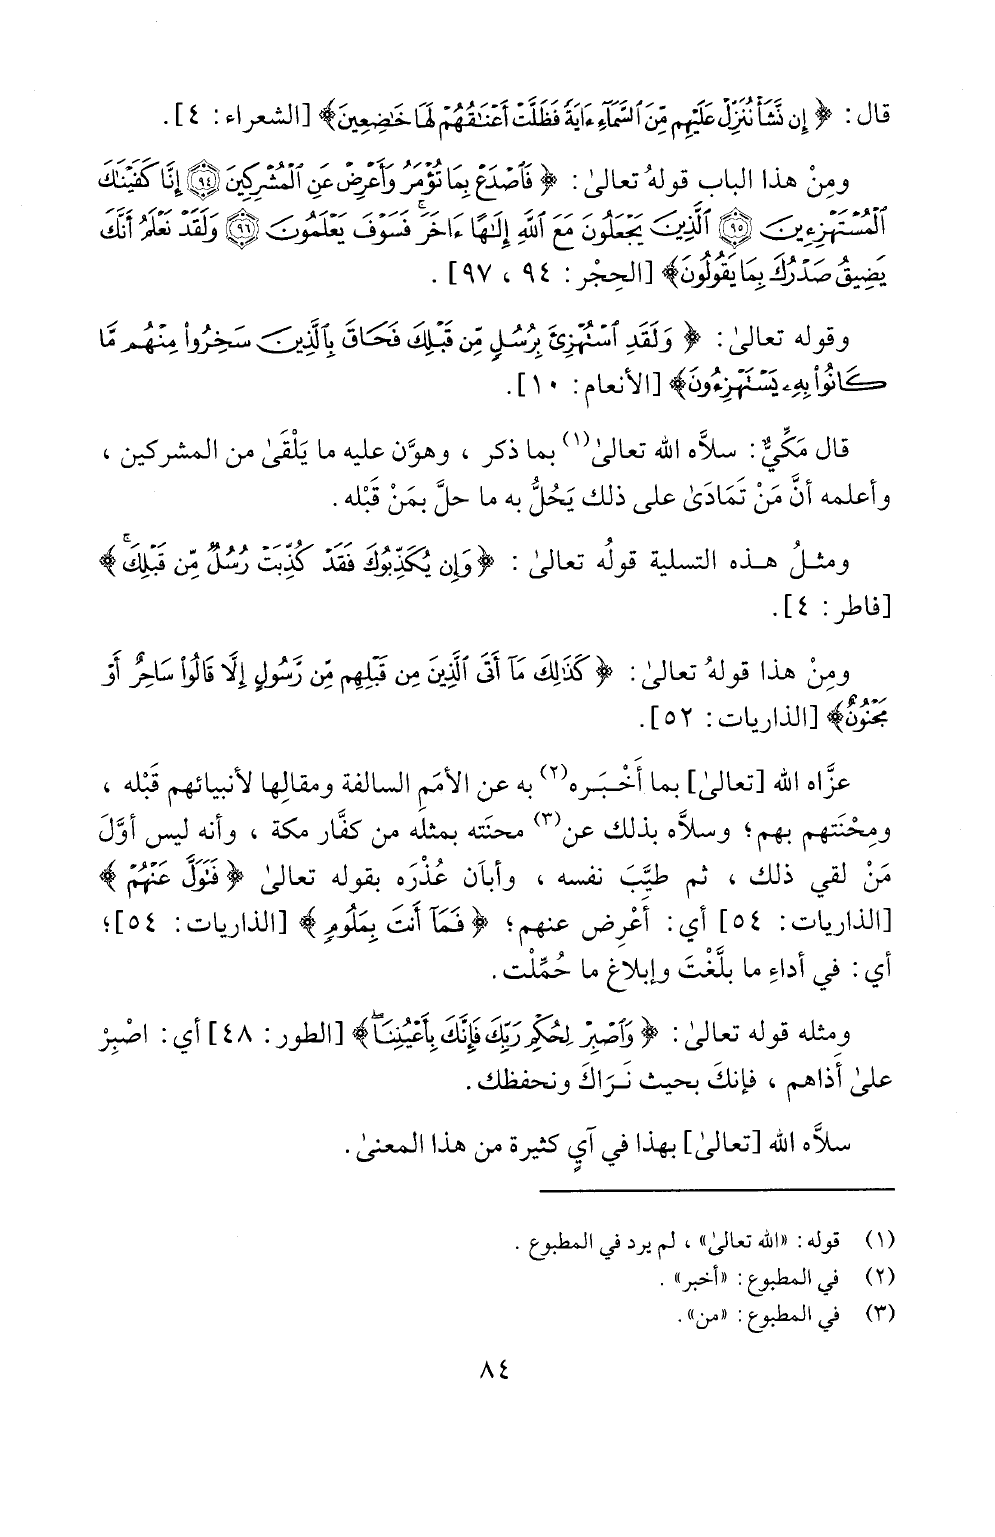 قال: ﴿ إِن نَّشَأْ نُنَزِّلْ عَلَيْهِم مِّنَ ٱلسَّمَآءِ ءَايَةً فَظَلَّتْ أَعْنَـٰقُهُمْ لَهَا خَـٰضِعِينَ﴾ [الشعراء: ٤].
ومِنْ هذا الباب قولهُ تعالىٰ: ﴿ فَٱصْدَعْ بِمَا تُؤْمَرُ وَأَعْرِضْ عَنِ ٱلْمُشْرِكِينَ ۝٩٤ إِنَّا كَفَيْنَـٰكَ
ٱلْمُسْتَهْزِءِينَ ۝٩٥ ٱلَّذِينَ يَجْعَلُونَ مَعَ ٱللَّهِ إِلَـٰهًا ءَاخَرَ ۚ فَسَوْفَ يَعْلَمُونَ ۝٩٦ وَلَقَدْ نَعْلَمُ أَنَّكَ
يَضِيقُ صَدْرُكَ بِمَا يَقُولُونَ﴾ [الحِجْر: ٩٤ ، ٩٧] .
وقوله تعالىٰ: ﴿ وَلَقَدِ ٱسْتُهْزِئَ بِرُسُلٍ مِّن قَبْلِكَ فَحَاقَ بِٱلَّذِينَ سَخِرُوا۟ مِنْهُم مَّا
كَانُوا۟ بِهِۦ يَسْتَهْزِءُونَ﴾ [الأنعام: ١٠].
قال مَكِّيٌّ: سلاَّه الله تعالىٰ(١) بما ذكر ، وهوَّن عليه ما يَلْقَىٰ من المشركين ،
وأعلمه أنَّ مَنْ تَمَادَىٰ على ذلك يَحُلُّ به ما حلَّ بمَنْ قَبْله .
ومثلُ هذه التسلية قولُه تعالىٰ : ﴿ وَإِن يُكَذِّبُوكَ فَقَدْ كُذِّبَتْ رُسُلٌ مِّن قَبْلِكَ ۚ ﴾
[فاطر: ٤].
ومِنْ هذا قولهُ تعالىٰ: ﴿ كَذَٰلِكَ مَآ أَتَى ٱلَّذِينَ مِن قَبْلِهِم مِّن رَّسُولٍ إِلَّا قَالُوا۟ سَاحِرٌ أَوْ
مَجْنُونٌ﴾ [الذاريات: ٥٢].
عزَّاه الله [تعالىٰ] بما أَخْبَره(٢) به عن الأمَمِ السالفة ومقالِها لأنبيائهم قَبْله ،
ومِحْنَتهم بهم؛ وسلاَّه بذلك عن(٣) محنَته بمثله من كفَّار مكة ، وأنه ليس أوَّلَ
مَنْ لقي ذلك ، ثم طيَّبَ نفسه ، وأبان عُذْرَه بقوله تعالىٰ ﴿ فَتَوَلَّ عَنْهُمْ ﴾
[الذاريات: ٥٤] أي: أَعْرِض عنهم؛ ﴿ فَمَآ أَنتَ بِمَلُومٍ ﴾ [الذاريات: ٥٤]؛
أي: في أداءِ ما بلَّغْتَ وإبلاغ ما حُمِّلْت.
ومثله قوله تعالىٰ: ﴿ وَٱصْبِرْ لِحُكْمِ رَبِّكَ فَإِنَّكَ بِأَعْيُنِنَا ۖ﴾ [الطور: ٤٨] أي: اصْبِرْ
علىٰ أذاهم ، فإنكَ بحيث نَرَاكَ ونحفظك.
سلاَّه الله [تعالىٰ] بهذا في آيٍ كثيرة من هذا المعنىٰ.
(١) قوله: «الله تعالىٰ» ، لم يرد في المطبوع .
(٢) في المطبوع: «أخبر» .
(٣) في المطبوع: «من».
٨٤